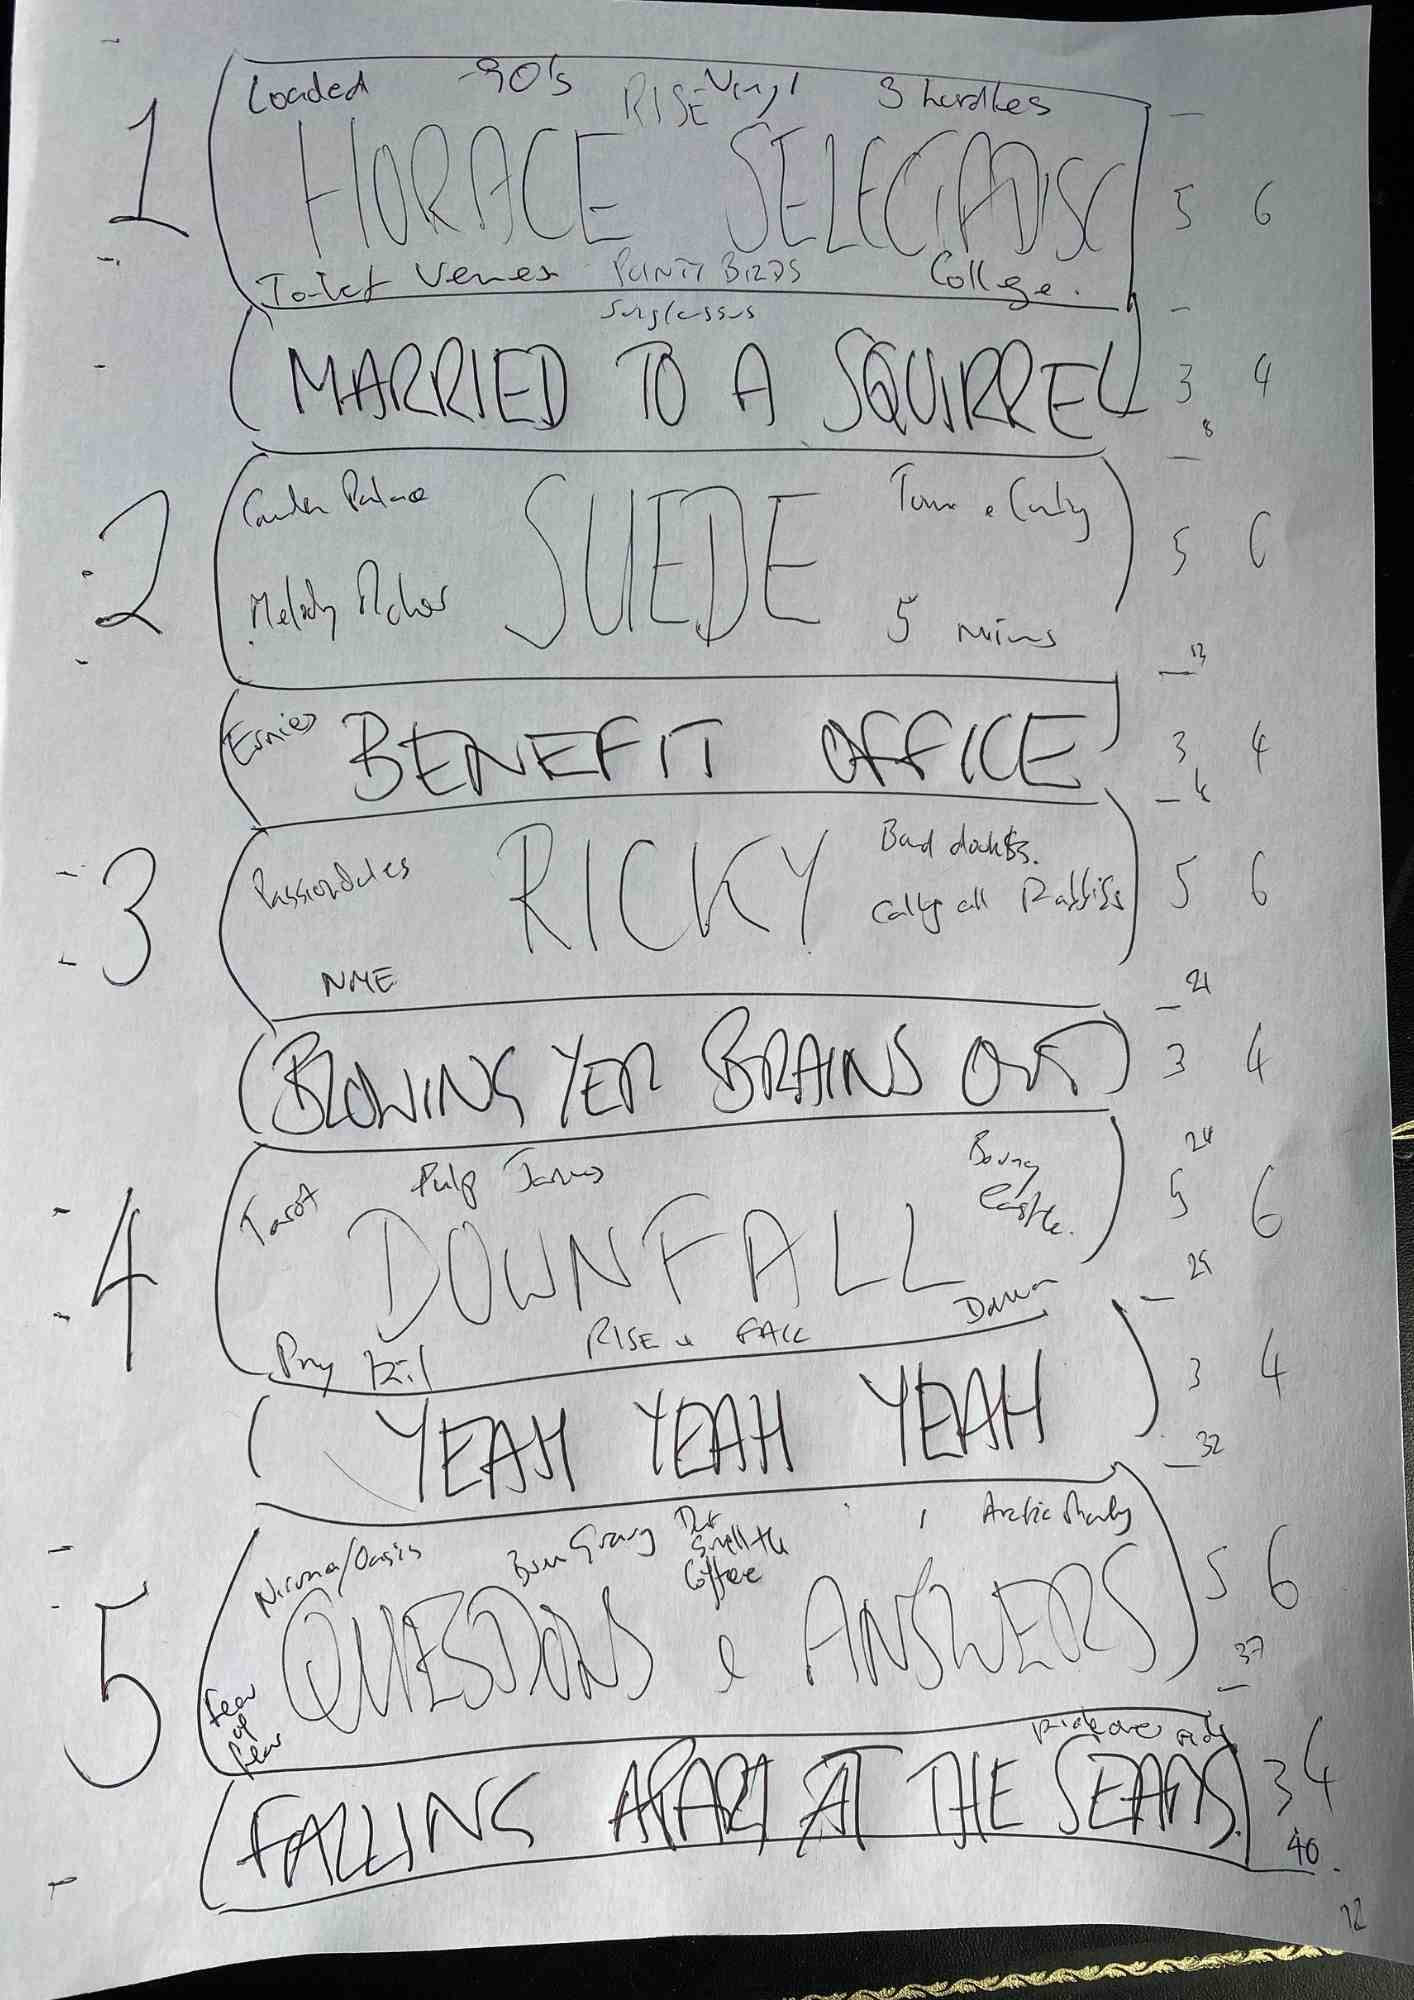 Loaded -90's RISE Vinyl 3 hurdles
1 HORACE SELECTADISC 5 6
Toilet Venues PUNTY BIRDS College.
Sunglasses
MARRIED TO A SQUIRREL 3 4
8
Camden Palace Town & Country
2 SUEDE 5 6
Melody Maker 5 mins
13
Ernies BENEFIT OFFICE 3 4
Bad
3 Passiondales RICKY calling all 5 6
NME 21
BLOWING YER BRAINS OUT 3 4
24
Tarot Pulp James Bouncy Castle.
4 DOWNFALL 5 6
29
RISE & FALL
YEAH YEAH YEAH 3 4
32
Nirvana/Oasis Smell the Coffee Arctic
5 QUESTIONS & ANSWERS 5 6
37
Fear of fear
FALLING APART AT THE SEAMS. 3 4
40.
12